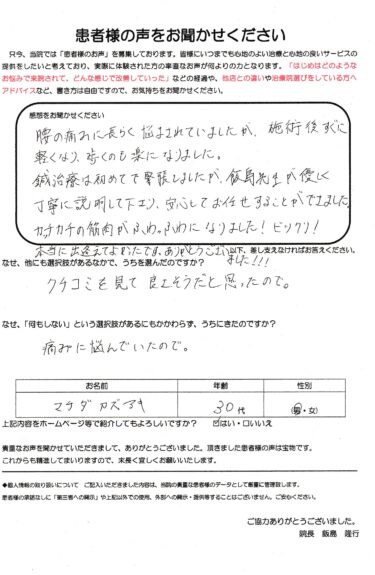 患者様の声をお聞かせください
只今、当院では「患者様のお声」を募集しております。皆様にいつまでも心地のよい治療と心地の良いサービスの
提供をしたいと考えており、実際に体験された方の率直なお声が何よりの力となります。「はじめはどのような
お悩みで来院されて、どんな感じで改善していった」などの経過や、他店との違いや治療院選びをしている方へ
アドバイスなど、書き方は自由ですので、お気持ちをお聞かせください。
感想をお聞かせください
腰の痛みに長らく悩まされていましたが、施術後すぐに
軽くなり、歩くのも楽になりました。
鍼治療は初めてで緊張しましたが、飯島先生が優しく
丁寧に説明して下さり、安心してお任せすることができました。
カチカチの筋肉がふわふわになりました！ビックリ！
本当に出逢えてよかったです。ありがとうござい
ました!!!
以下、差し支えなければお答えください。
なぜ、他にも選択肢があるなかで、うちを選んだのですか？
クチコミを見て良さそうだと思ったので。
なぜ、「何もしない」という選択肢があるにもかかわらず、うちにきたのですか？
痛みに悩んでいたので。
お名前 年齢 性別
マチダ カズアキ 30代 男・女
上記内容をホームページ等で紹介してもよろしいですか？ ☑はい・□いいえ
貴重なお声を聞かせていただきまして、ありがとうございました。頂きました患者様の声は宝物です。
これからも精進してまいりますので、末長く宜しくお願いいたします。
◆個人情報の取り扱いについて ご記入いただきました内容は、当院の貴重な患者様のデータとして厳重に管理致します。
患者様の承諾なしに「第三者への開示」や上記以外での使用、外部への開示・提供等することはございません。ご安心ください。
ご協力ありがとうございました。
院長 飯島 隆行